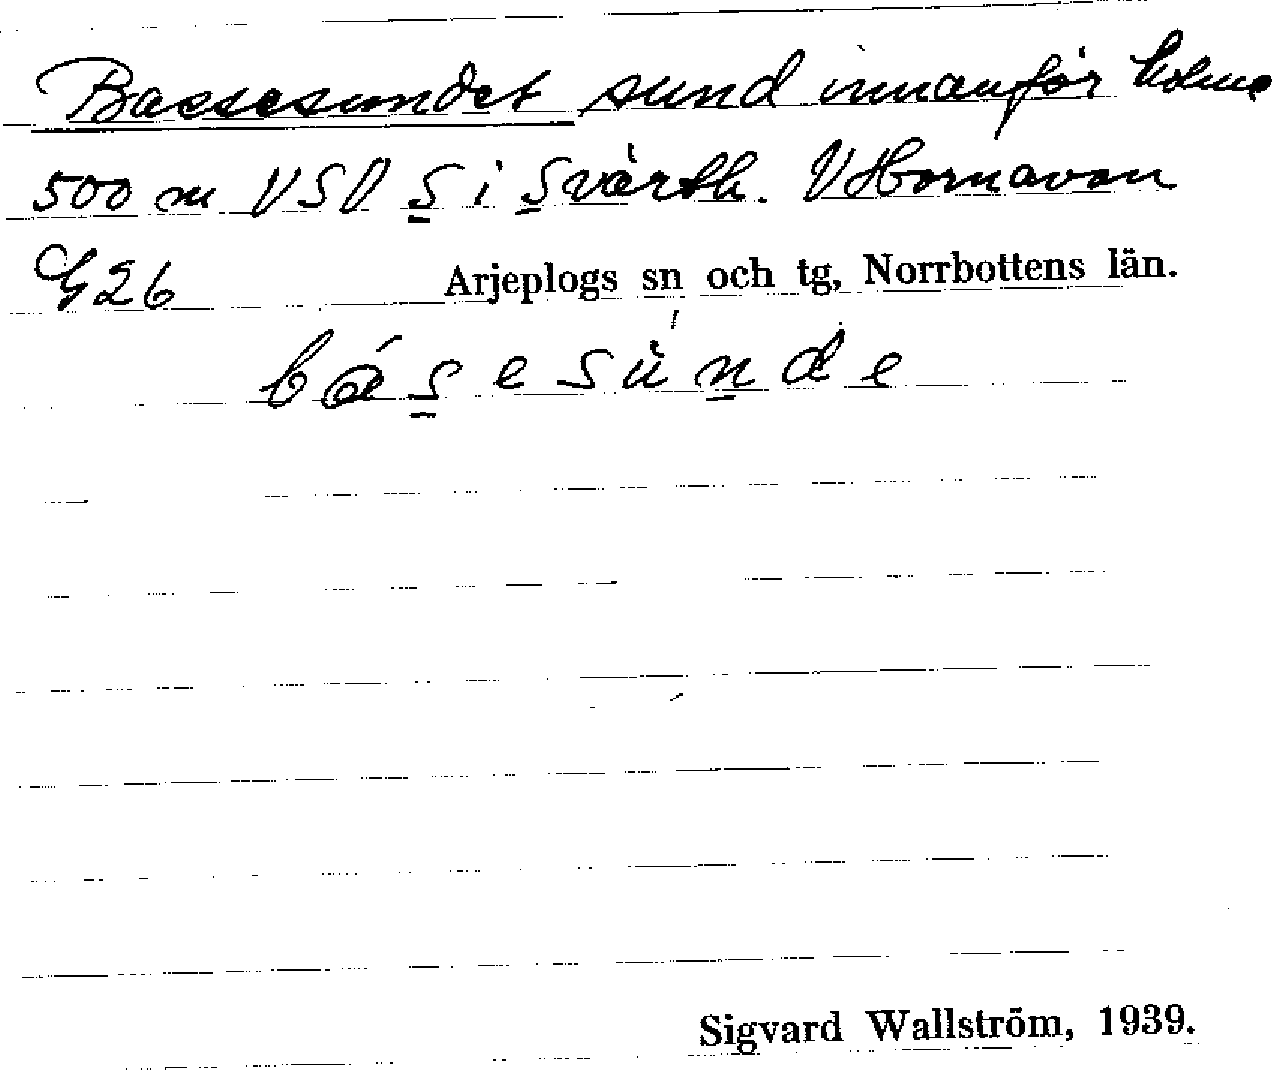 Bassesundet sund innanför holme
500 m VSV S i Svarth. V Hornavan
G26 Arjeplogs sn och tg, Norrbottens län.
bá s̲ e s ù n̲ d e
Sigvard Wallström, 1939.